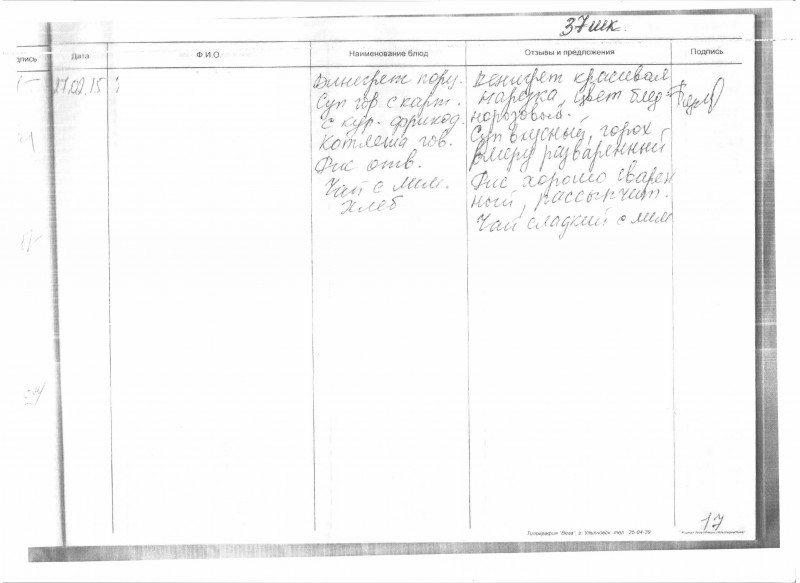 37 шк.
дпись
Дата
Ф.И.О
Наименование блюд
Отзывы и предложения
Подпись
27.02.15
Винегрет
Суп гор. с карт.
с кур. фрикад.
Котлета гов.
Рис отв.
Чай с лим.
Хлеб
Венигрет красивая
нарезка, цвет блед-
норозовый.
Суп вкусный, горох
вмеру разваренный
Рис хорошо сварен
ный, рассыпчат.
Чай сладкий с лим
17
Типография "Вега", г. Ульяновск тел.: 20-04-20